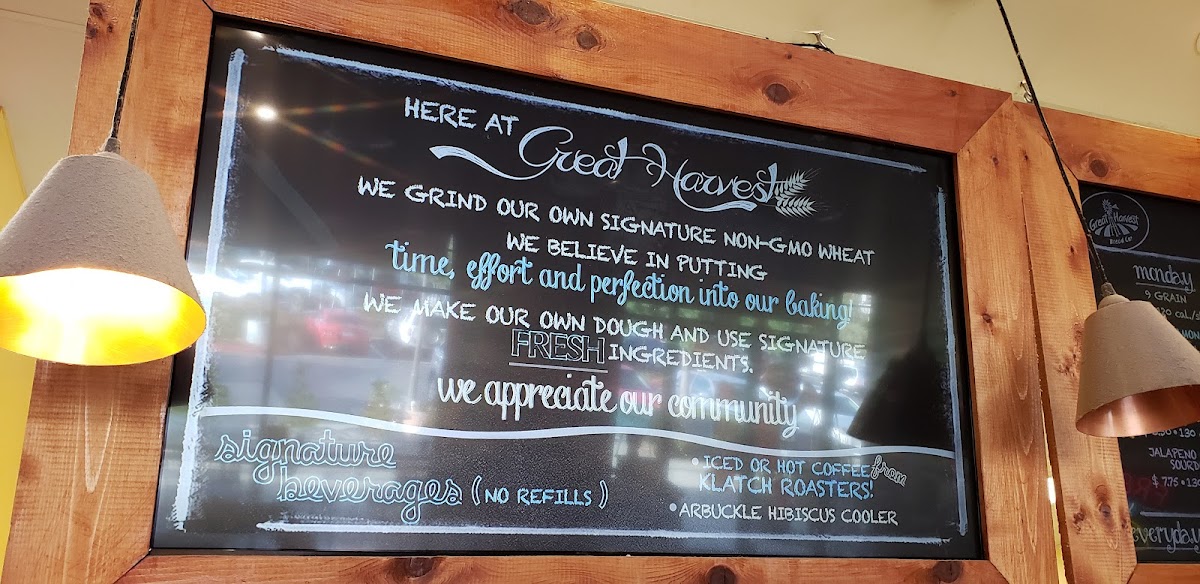 HERE AT Great Harvest
WE GRIND OUR OWN SIGNATURE NON-GMO WHEAT
WE BELIEVE IN PUTTING
time, effort and perfection into our baking!
WE MAKE OUR OWN DOUGH AND USE SIGNATURE
FRESH INGREDIENTS.
we appreciate our community
signature
beverages (NO REFILLS)
• ICED OR HOT COFFEE from
KLATCH ROASTERS!
• ARBUCKLE HIBISCUS COOLER
Great Harvest
Bread Co.
monday
9 GRAIN
JALAPENO
$ 7.75 • 130
everyday